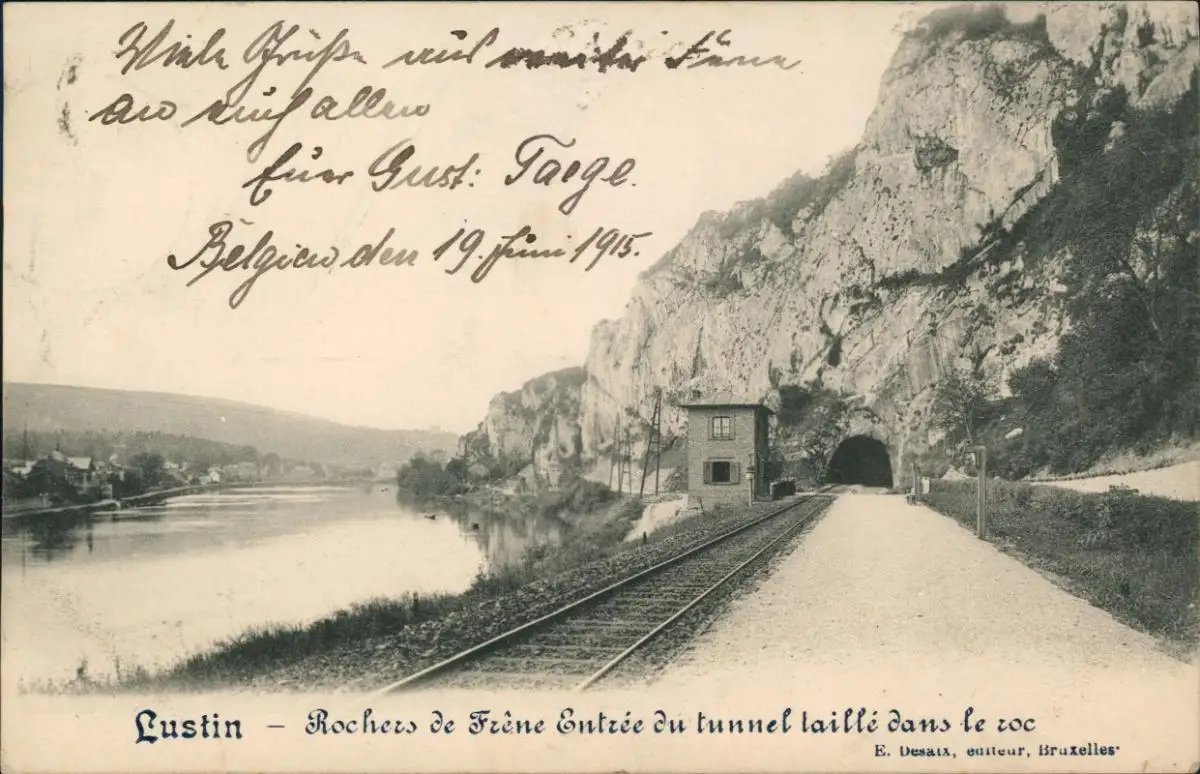 Viele Grüße aus weiter Ferne
an euch allen
Euer Gust: Taege.
Belgien den 19. Juni 1915.
Lustin – Rochers de Frêne Entrée du tunnel taillé dans le roc
E. Desaix, editeur, Bruxelles